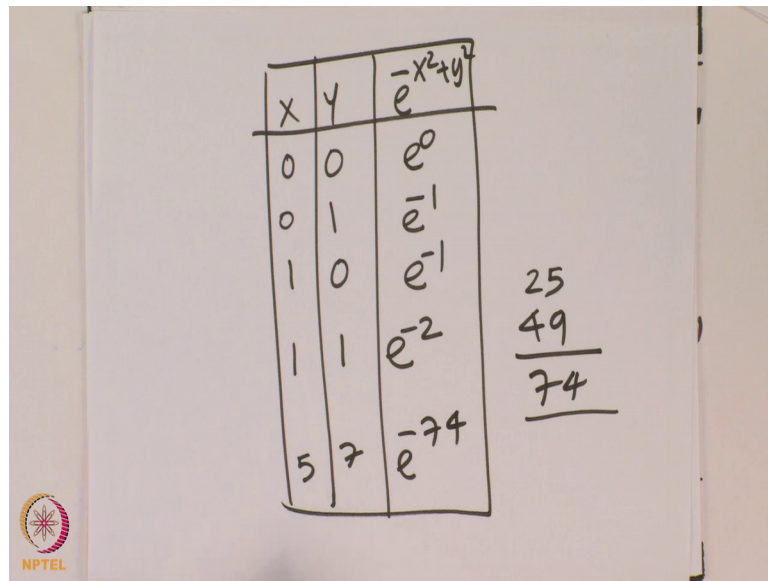 x y e^-x²+y²
0 0 e^0
0 1 e^-1
1 0 e^-1
1 1 e^-2
5 7 e^-74
25
49
74
NPTEL